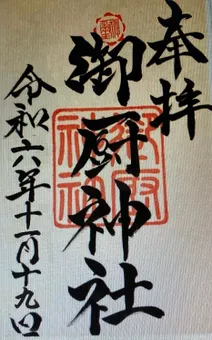 奉拝
御厨神社
令和六年十一月十九日